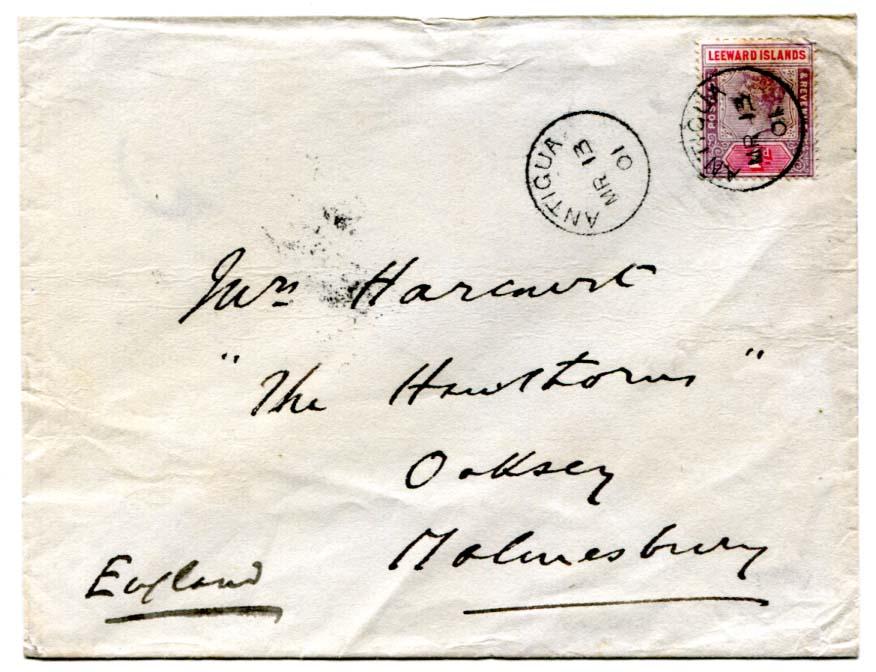 LEEWARD ISLANDS
POSTAGE & REVENUE
1d
ANTIGUA
MR 13
01
ANTIGUA
MR 13
01
Mrs Harcourt
"The Hawthorns"
Oaksey
Malmesbury
England